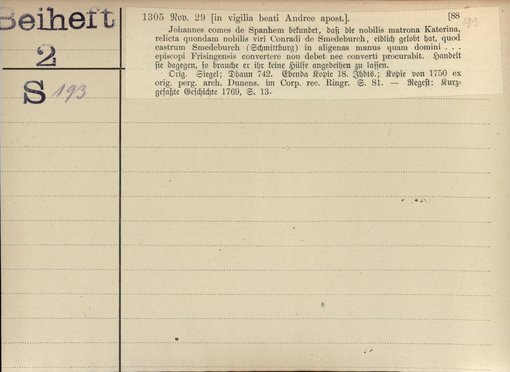 Beiheft
2
S 193
1305 Nov. 29 [in vigilia beati Andree apost.]. [88
193
Johannes comes de Spanhem bekundet, daß die nobilis matrona Katerina,
relicta quondam nobilis viri Conradi de Smedeburch, eidlich gelobt hat, quod
castrum Smedeburch (Schmittburg) in aligenas manus quam domini . . .
episcopi Frisingensis convertere non debet nec converti procurabit. Handelt
sie dagegen, so brauche er ihr keine Hülfe angedeihen zu lassen.
Orig. Siegel; Dhaun 742. Ebenda Kopie 18. Jhdts.; Kopie von 1750 ex
orig. perg. arch. Dunens. im Corp. rec. Ringr. S. 81. — Regest: Kurz-
gefaßte Geschichte 1769, S. 13.